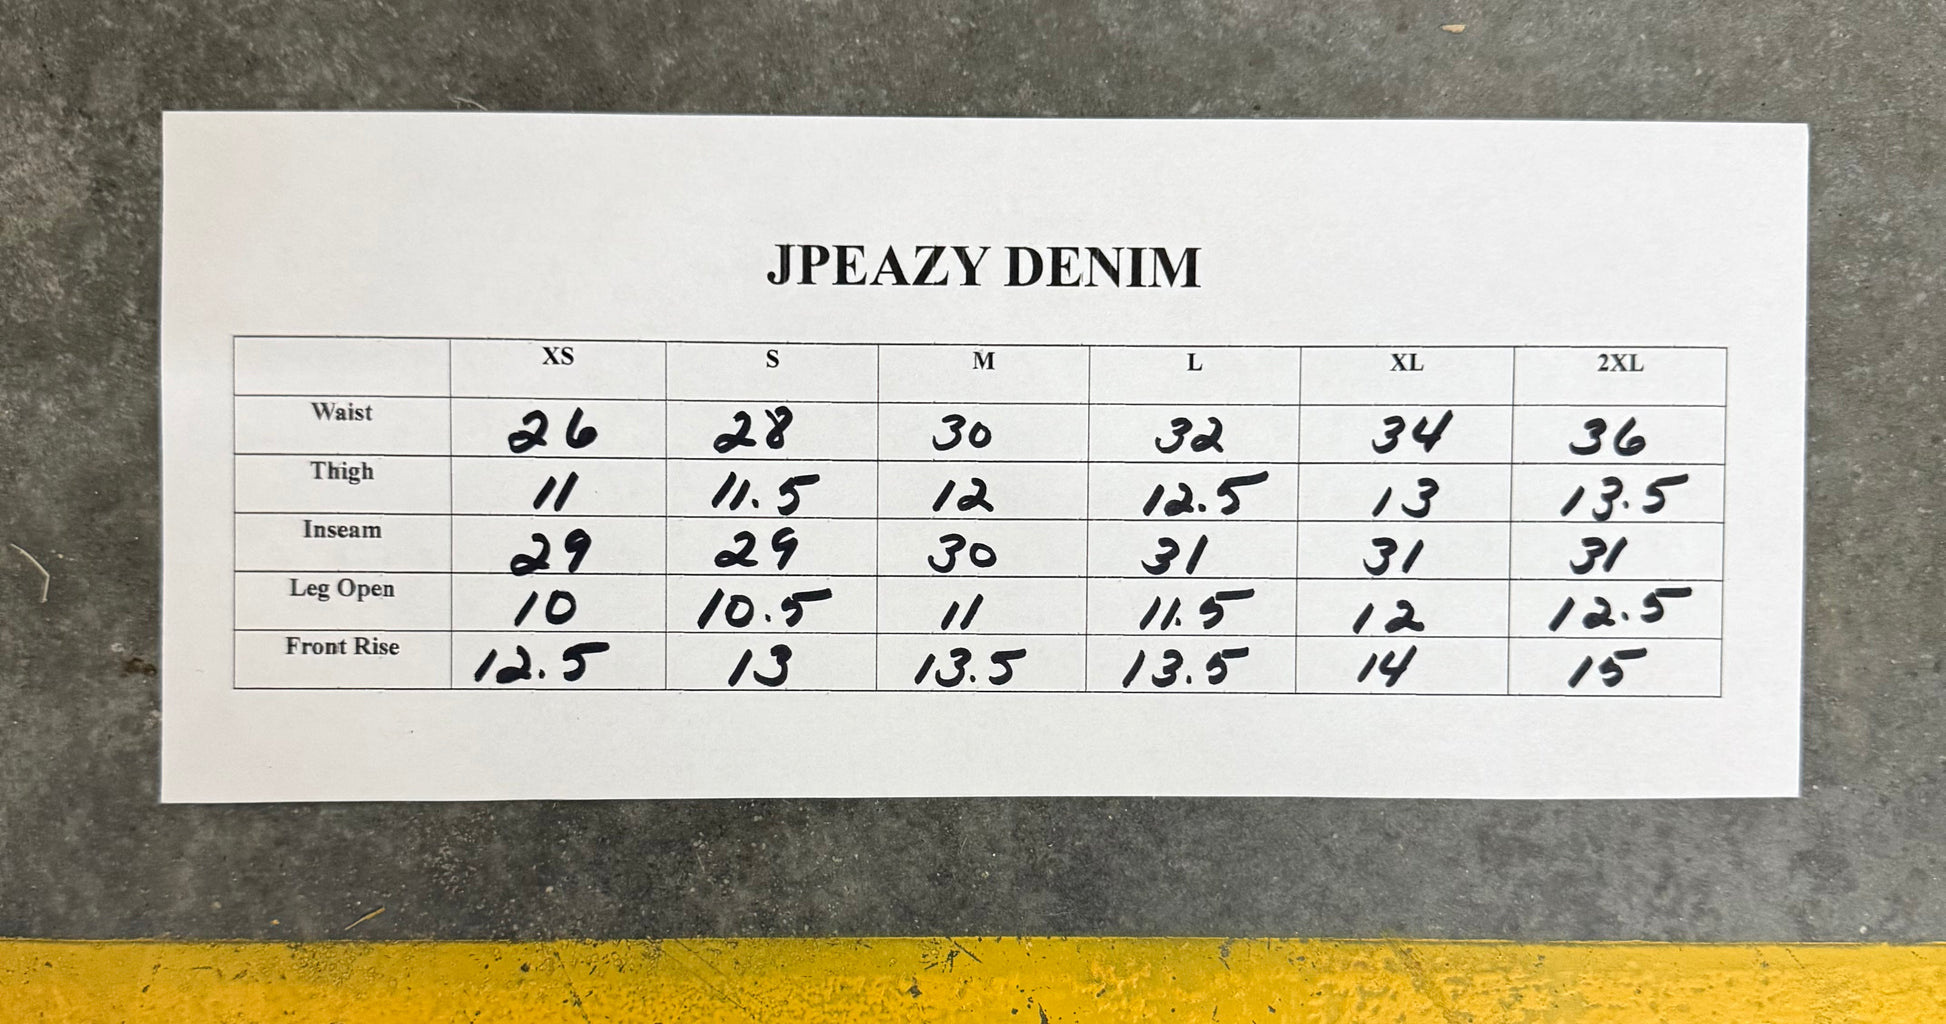 JPEAZY DENIM
XS S M L XL 2XL
Waist 26 28 30 32 34 36
Thigh 11 11.5 12 12.5 13 13.5
Inseam 29 29 30 31 31 31
Leg Open 10 10.5 11 11.5 12 12.5
Front Rise 12.5 13 13.5 13.5 14 15